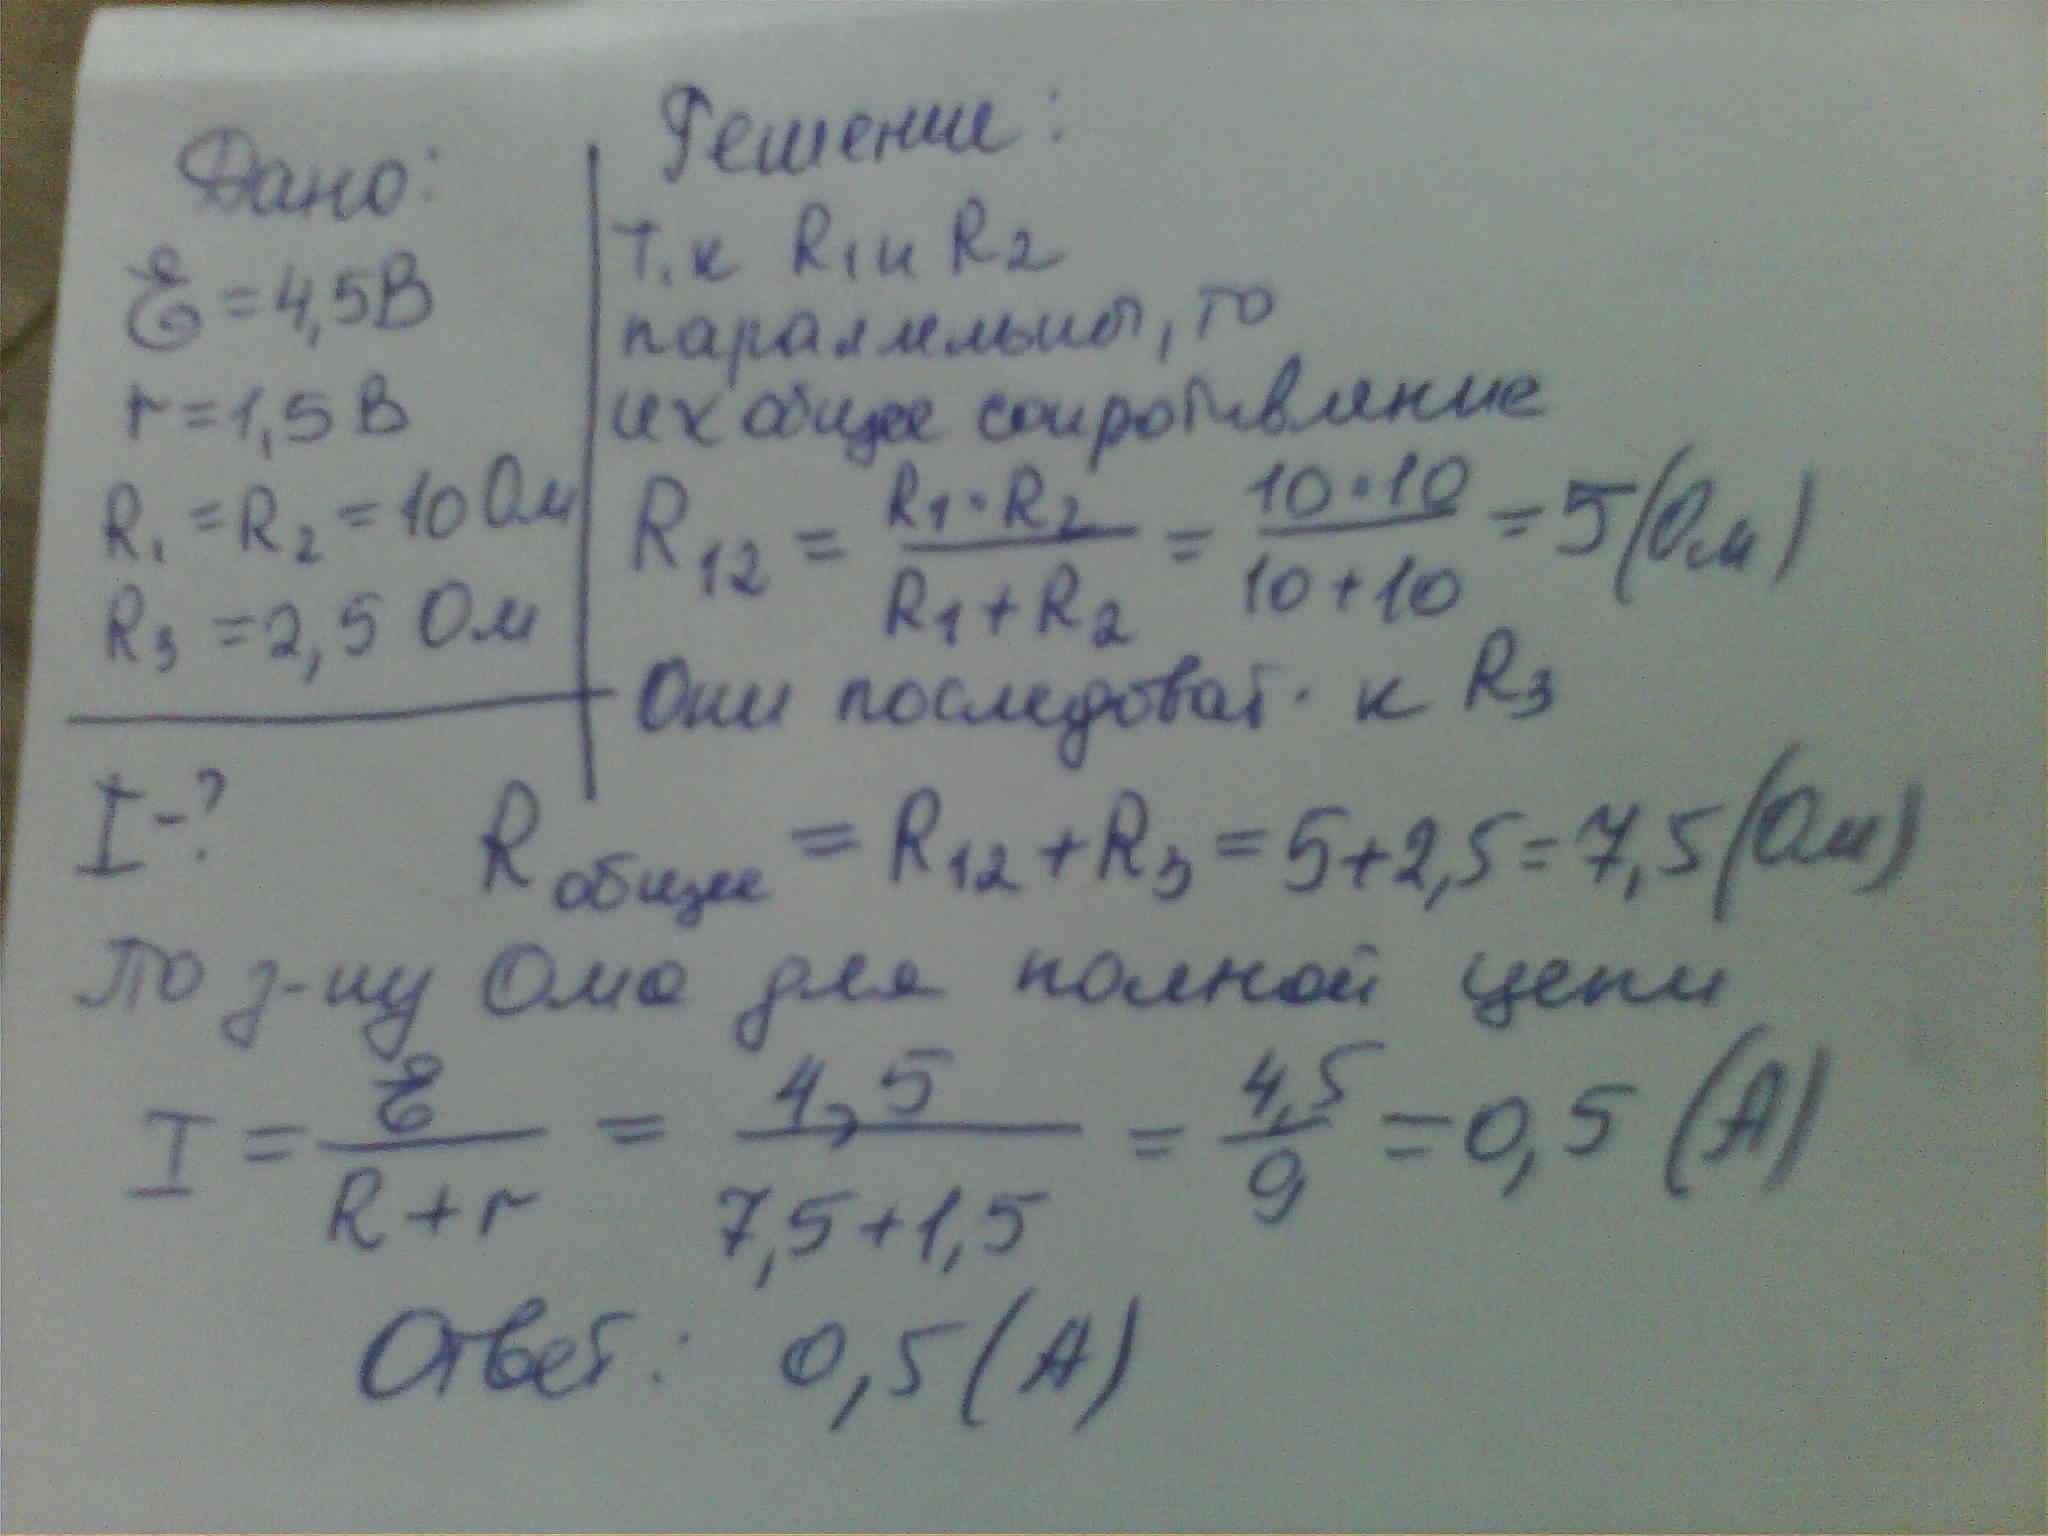 Дано:
ℰ = 4,5 В
r = 1,5 В
R₁ = R₂ = 10 Ом
R₃ = 2,5 Ом
I - ?
Решение:
т.к R₁ и R₂
параллельны, то
их общее сопротивление
R₁₂ = (R₁·R₂)/(R₁+R₂) = (10·10)/(10+10) = 5 (Ом)
Они последоват. к R₃
R общее = R₁₂ + R₃ = 5+2,5 = 7,5 (Ом)
По з-ну Ома для полной цепи
I = ℰ/(R+r) = 4,5/(7,5+1,5) = 4,5/9 = 0,5 (А)
Ответ: 0,5 (А)